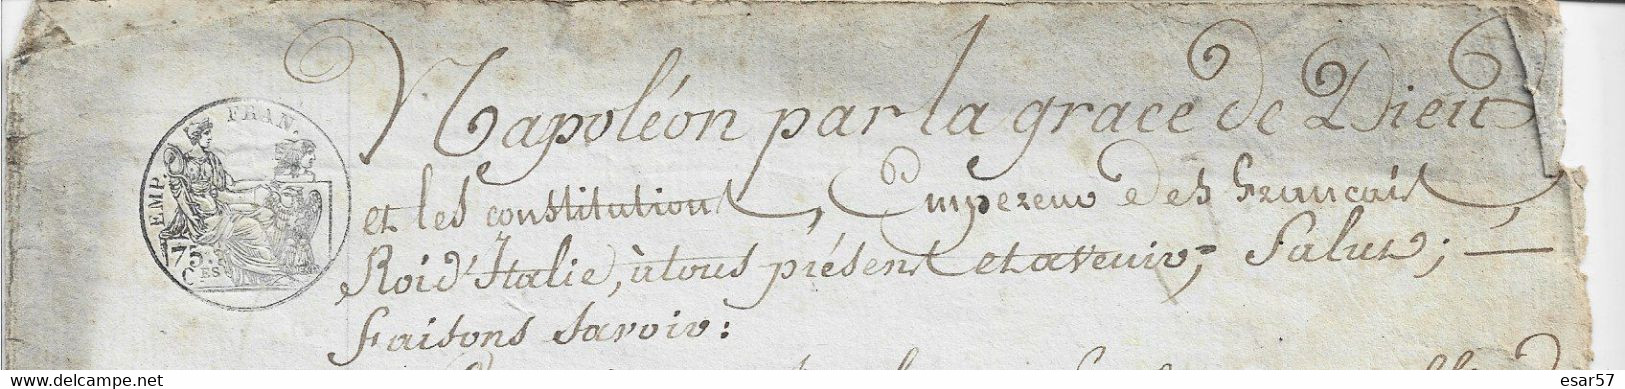 EMP. FRAN.
75.
CES
Napoléon par la grace de Dieu
et les constitutions, Empereur des français
Roi d'Italie, à tous présent et avenir, Salut;
faisons savoir:
esar57